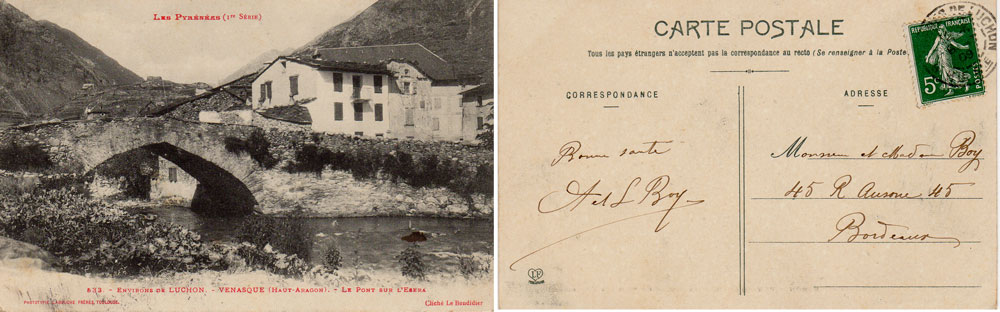 LES PYRÉNÉES (1re Série)
833 - ENVIRONS DE LUCHON. - VENASQUE (HAUT-ARAGON). - LE PONT SUR L'ESERA
PHOTOTYPIE LABOUCHE FRÈRES, TOULOUSE.
Cliché Le Bondidier
CARTE POSTALE
Tous les pays étrangers n'acceptent pas la correspondance au recto (Se renseigner à la Poste)
CORRESPONDANCE
ADRESSE
REPUBLIQUE FRANÇAISE
5c
POSTES
DE LUCHON
Bonne santé
A et L Boy
Monsieur et Madame Boy
45 R Ausone 45
Bordeaux